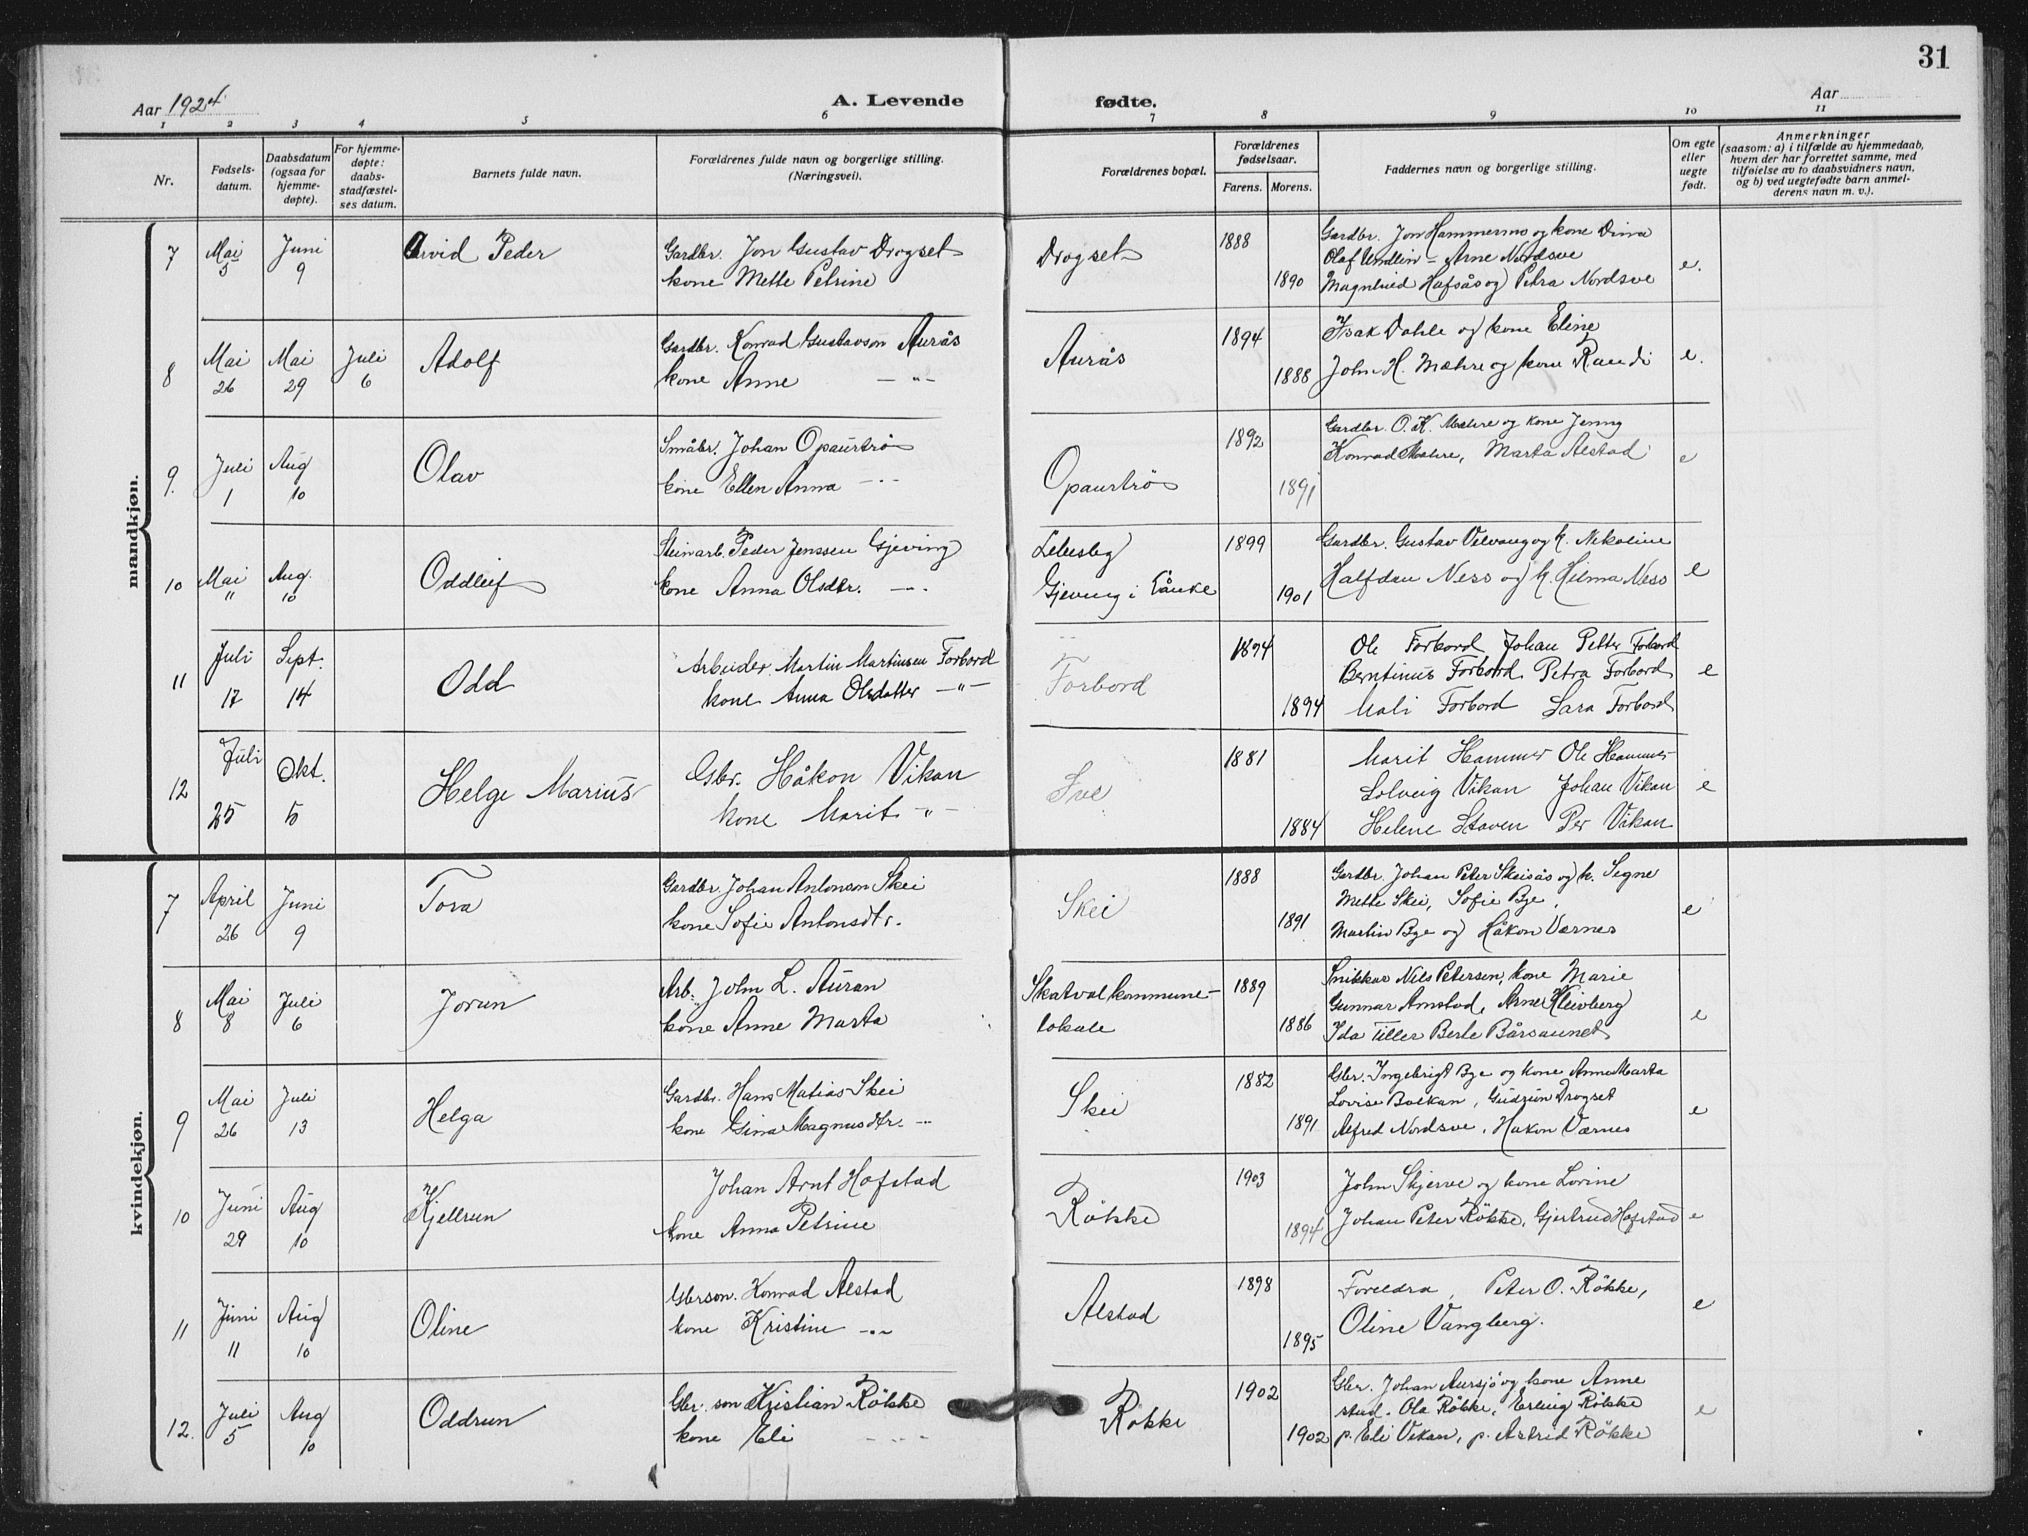 31
Aar 1924
A. Levende
fødte.
Aar
1 2 3 4 5 6 7 8 9 10 11
Nr.
Fødsels-
datum.
Daabsdatum
(ogsaa for
hjemme-
døpte).
For hjemme-
døpte:
daabs-
stadfæstel-
ses datum.
Barnets fulde navn.
Forældrenes fulde navn og borgerlige stilling.
(Næringsvei).
Forældrenes bopæl.
Forældrenes
fødselsaar.
Farens. Morens.
Faddernes navn og borgerlige stilling.
Om egte
eller
uegte
født.
Anmerkninger
(saasom: a) i tilfælde av hjemmedaab,
hvem der har forrettet samme, med
tilføielse av to daabsvidners navn,
og b) ved uegtefødte barn anmel-
derens navn m. v.).
mandkjøn.
7 Mai 5 Juni 9 Arvid Peder Gardbr. Jon Gustav Drogset Drogset 1888 Gardbr. Jon Hammermo og kone Dina
Olaf Undlin - Arne Nordsve
kone Mette Petrine 1890 Magnhild Hafsås og Petra Nordsve e.
8 Mai 26 Mai 29 Juli 6 Adolf Gardbr. Konrad Gustavson Aurås Aurås 1894 Isak Dahle og kone Eline
kone Anne -"- 1888 John H. Mæhre og kone Randi e.
9. Juli 1 Aug 10 Olav Småbr. Johan Opaurtrø Opaurtrø 1892 Gardbr. O. K. Mæhre og kone Jenny
Konrad Mæhre, Marta Alstad e
kone Ellen Anna -"- 1891
10 Mai " Aug. 10 Oddleif Steinarb. Peder Jenssen Gjeving Lebesby 1899 Gardbr. Gustav Velvang og k. Nikoline
kone Anna Olsdtr. -"- Gjeving i Lånke 1901 Halfdan Ness og k. Hilma Ness e
11 Juli 17 Sept. 14 Odd Arbeider Martin Martinsen Forbord Forbord 1894 Ole Forbord Johan Petter Forbord
Berntinus Forbord Petra Forbord e
kone Anna Olsdatter -"- 1894 Mali Forbord Sara Forbord
12 Juli 25 Okt. 5 Helge Marius Gbr. Håkon Vikan Sve 1881 Marit Hammer Ole Hammer
Solveig Vikan Johan Vikan e
kone Marit -"- 1884 Helene Staven Per Vikan
kvindekjøn.
7 April 26 Juni 9 Tora Gardbr. Johan Antonson Skei Skei 1888 Gardbr. Johan Peter Skeisås og k. Signe
Mette Skei, Sofie Bye,
kone Sofie Antonsdtr. 1891 Martin Bye og Håkon Værnes e
8 Mai 8 Juli 6 Jorun Arb. John L. Auran Skatval kommune- 1889 Snikkar Nils Petersen, kone Marie
Gunnar Amstad, Arne Kleivberg
kone Anne Marta lokale 1886 Ida Tiller Berle Bårsaunet e
9 Mai 26 Juli 13 Helga Gardbr. Hans Matias Skei Skei 1882 Gbr. Ingebrigt Bye og kone Anne Marta
Lovise Balkan, Gudrun Drogset
kone Gina Magnusdtr. -"- 1891 Alfred Nordsve, Hakon Værnes e
10 Juni 29 Aug 10 Kjellrun Johan Arnt Hofstad Røkke 1903 John Skjerve og kone Lovine
kone Anna Petrine 1894 Johan Peter Røkke, Gjertrud Hofstad e
11 Juni 11 Aug 10 Oline Gbrson. Konrad Alstad Alstad 1898 Foreldra, Peter O. Røkke,
kone Kristine -"- 1895 Oline Vangberg. e
12. Juli 5 Aug 10 Oddrun Gbr. son Kristian Røkke Røkke 1902 Gbr. Johan Aursjø og kone Anne
stud. Ola Røkke, Erling Røkke
kone Eli - " - 1902 p. Eli Vikan, p. Astrid Røkke e